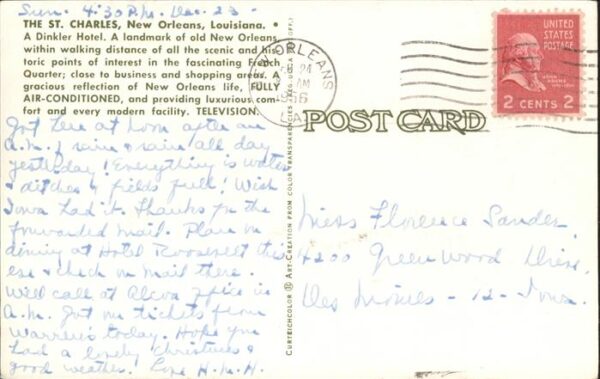 Sun. 4:30 P.M. Dec. 23 -
THE ST. CHARLES, New Orleans, Louisiana. •
A Dinkler Hotel. A landmark of old New Orleans,
within walking distance of all the scenic and his-
toric points of interest in the fascinating French
Quarter; close to business and shopping areas. A
gracious reflection of New Orleans life, FULLY
AIR-CONDITIONED, and providing luxurious com-
fort and every modern facility. TELEVISION.
Got here at noon after an
A.M. rain & rain all day
yesterday! Everything is water
& ditches & fields full! Wish
Iowa had it. Thanks for the
forwarded mail. Plan on
dining at Hotel Roosevelt this
eve & check on mail there.
Will call at Alcoa office in
A.M. Got my tickets from
Warren's today. Hope you
had a lovely Christmas &
good weather. Love H.M.H.
CURTEICHCOLOR ® ART-CREATION FROM COLOR TRANSPARENCIES
ORLEANS
24
AM
LA
UNITED
STATES
POSTAGE
2 CENTS 2
POST CARD
Miss Florence Sander
4200 Greenwood Drive
Des Moines - 12 - Iowa.